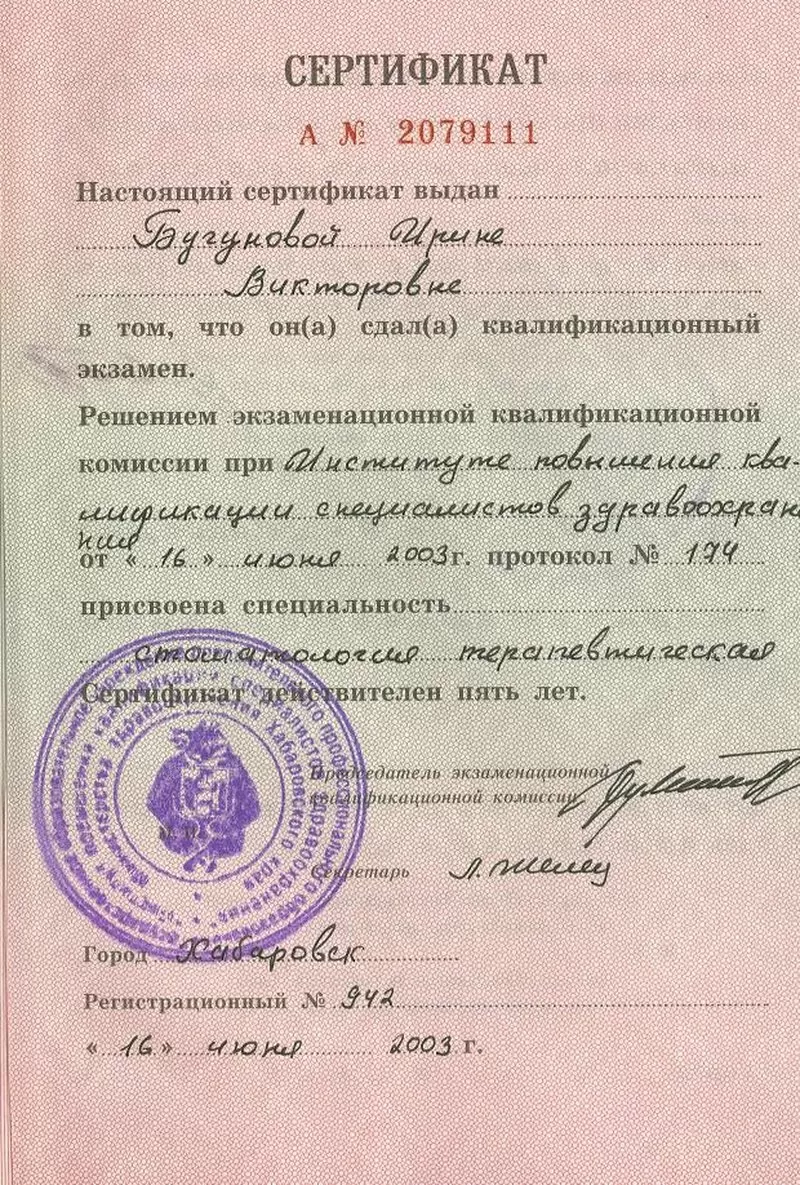 СЕРТИФИКАТ
А № 2079111
Настоящий сертификат выдан
Бугуновой Ирине
Викторовне
в том, что он(а) сдал(а) квалификационный
экзамен.
Решением экзаменационной квалификационной
комиссии при Институте повышения ква-
лификации специалистов здравоохране
нии
от « 16 » июня 2003 г. протокол № 174
присвоена специальность
стоматология терапевтическая
Сертификат действителен пять лет.
Председатель экзаменационной
квалификационной комиссии
Секретарь Л. Желец
Город Хабаровск
Регистрационный № 942
« 16 » июня 2003 г.